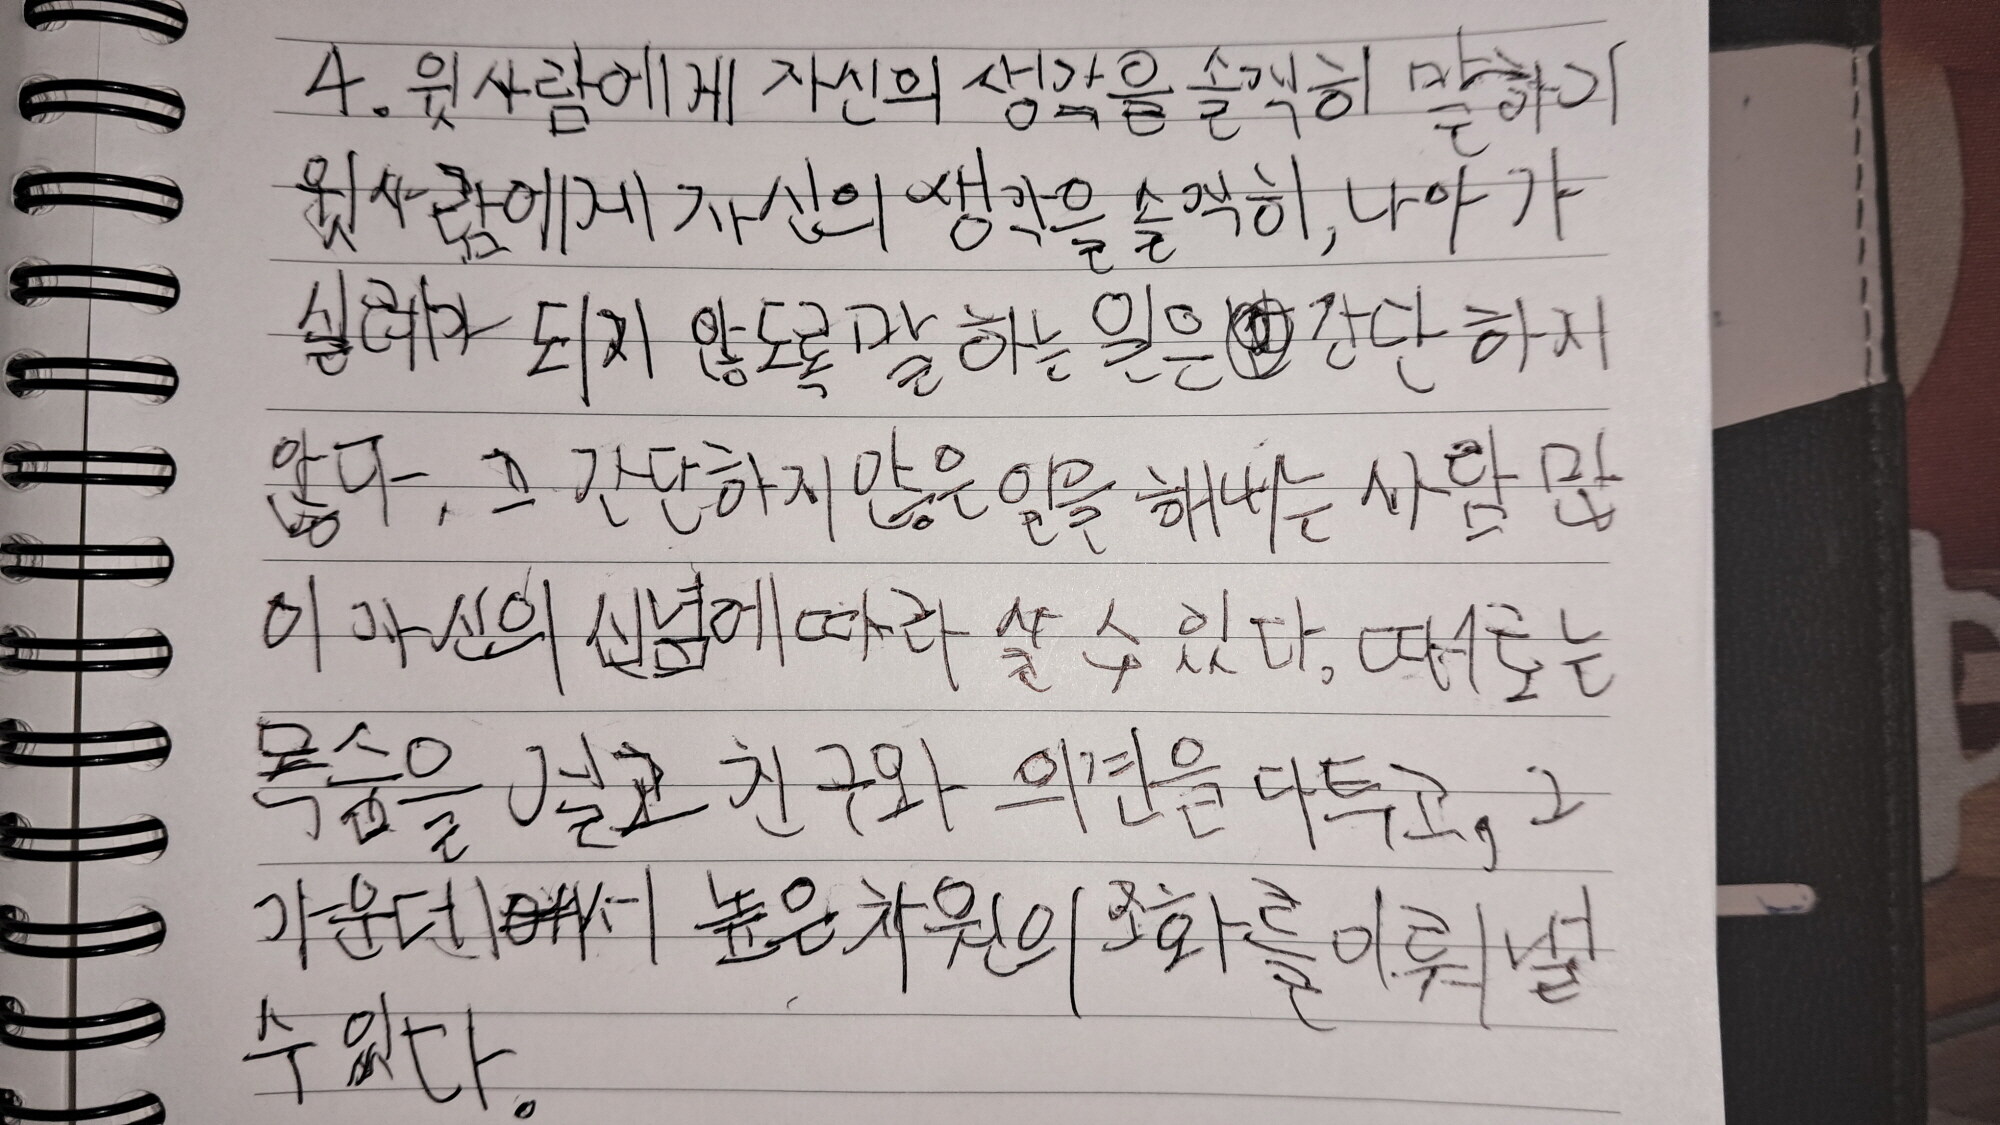 4. 윗사람에게 자신의 생각을 솔직히 말하기
윗사람에게 자신의 생각을 솔직히, 나아가
실례가 되지 않도록 말하는 일은 간단하지
않다. 그 간단하지 않은 일을 해내는 사람만
이 자신의 신념에 따라 살 수 있다. 때로는
목숨을 걸고 친구와 의견을 다투고, 그
가운데에서 높은 차원의 조화를 이뤄 낼
수 있다.